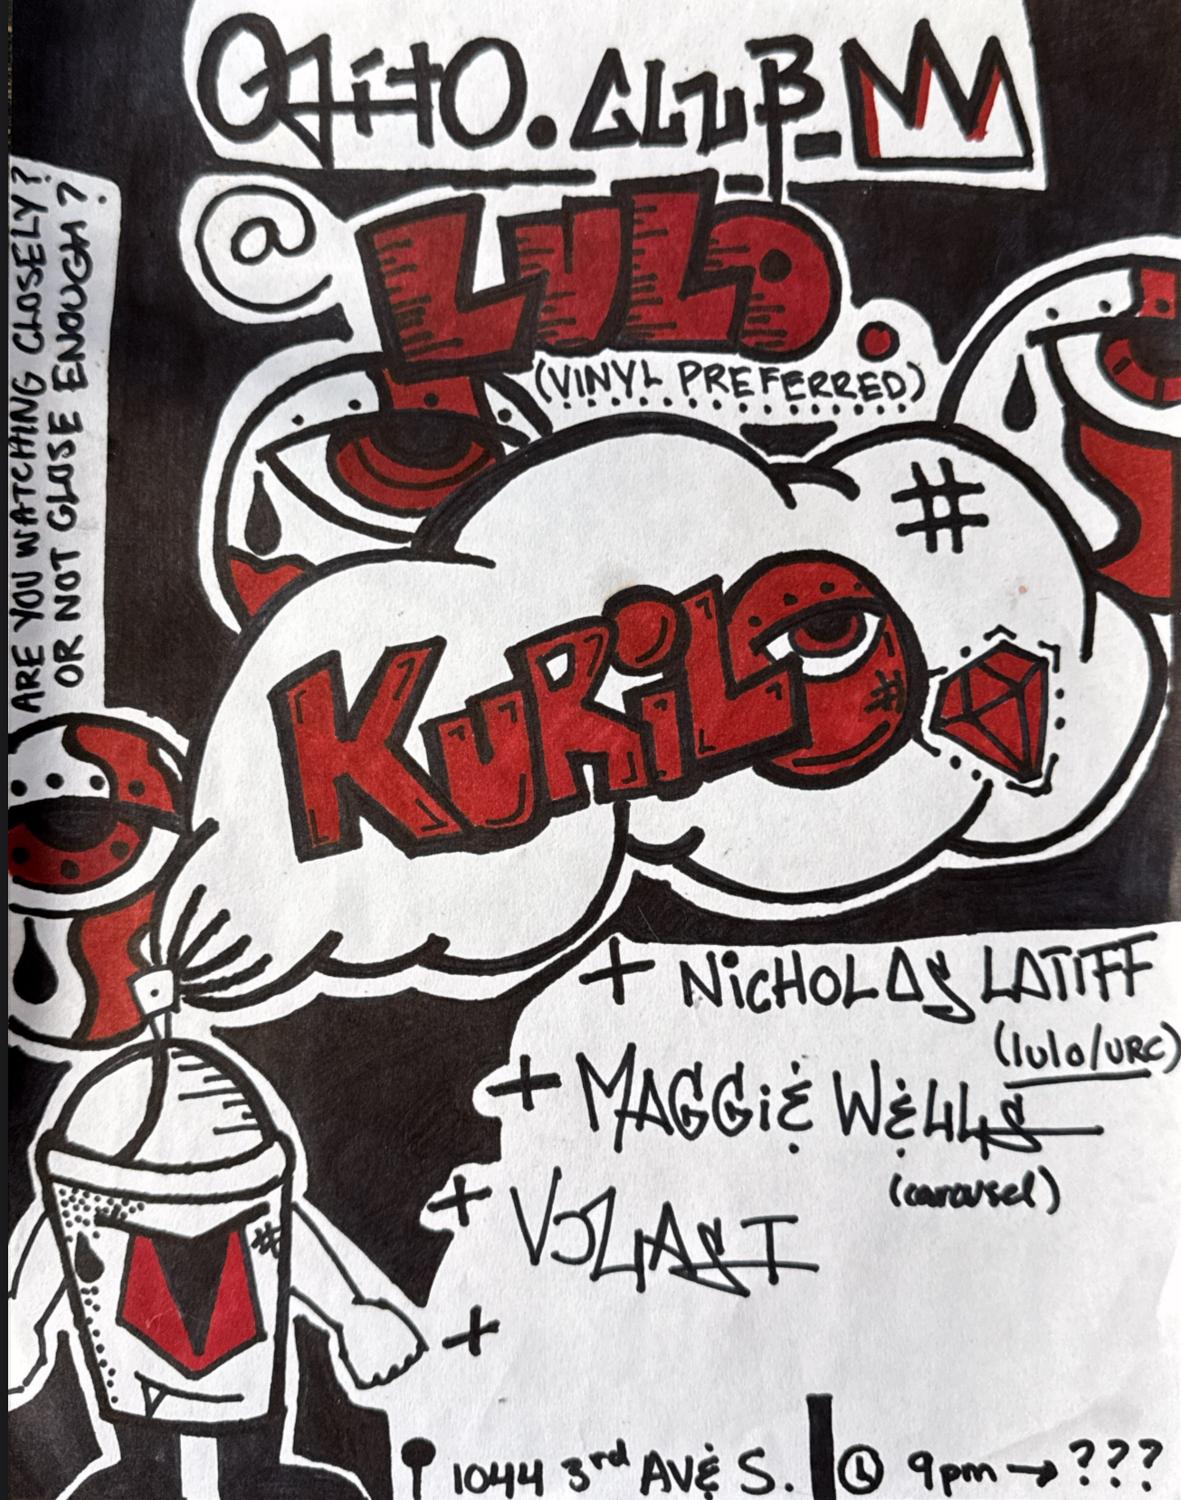 OJITO.CLUB_
@ LULO
(VINYL PREFERRED)
ARE YOU WATCHING CLOSELY?
OR NOT CLOSE ENOUGH?
#
KURILO
#
+ NICHOLAS LATIFF
(lulo/URC)
+ MAGGIE WELLS
(carousel)
+
#
+
1044 3rd AVE S. | 9pm → ???